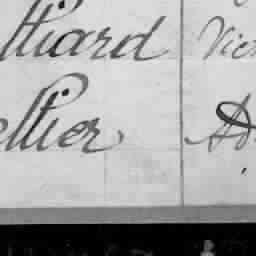 lliard Vic
ellier Ad